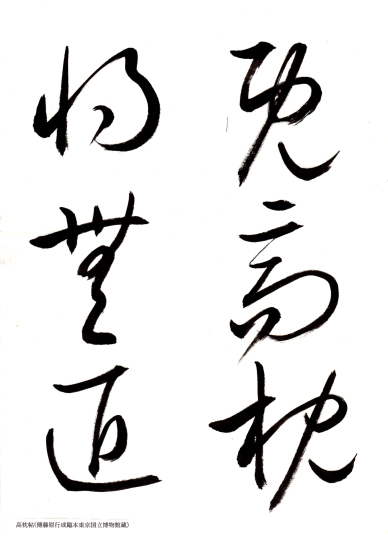 既高枕
将無
高枕帖(傳藤原行成臨本東京国立博物館藏)